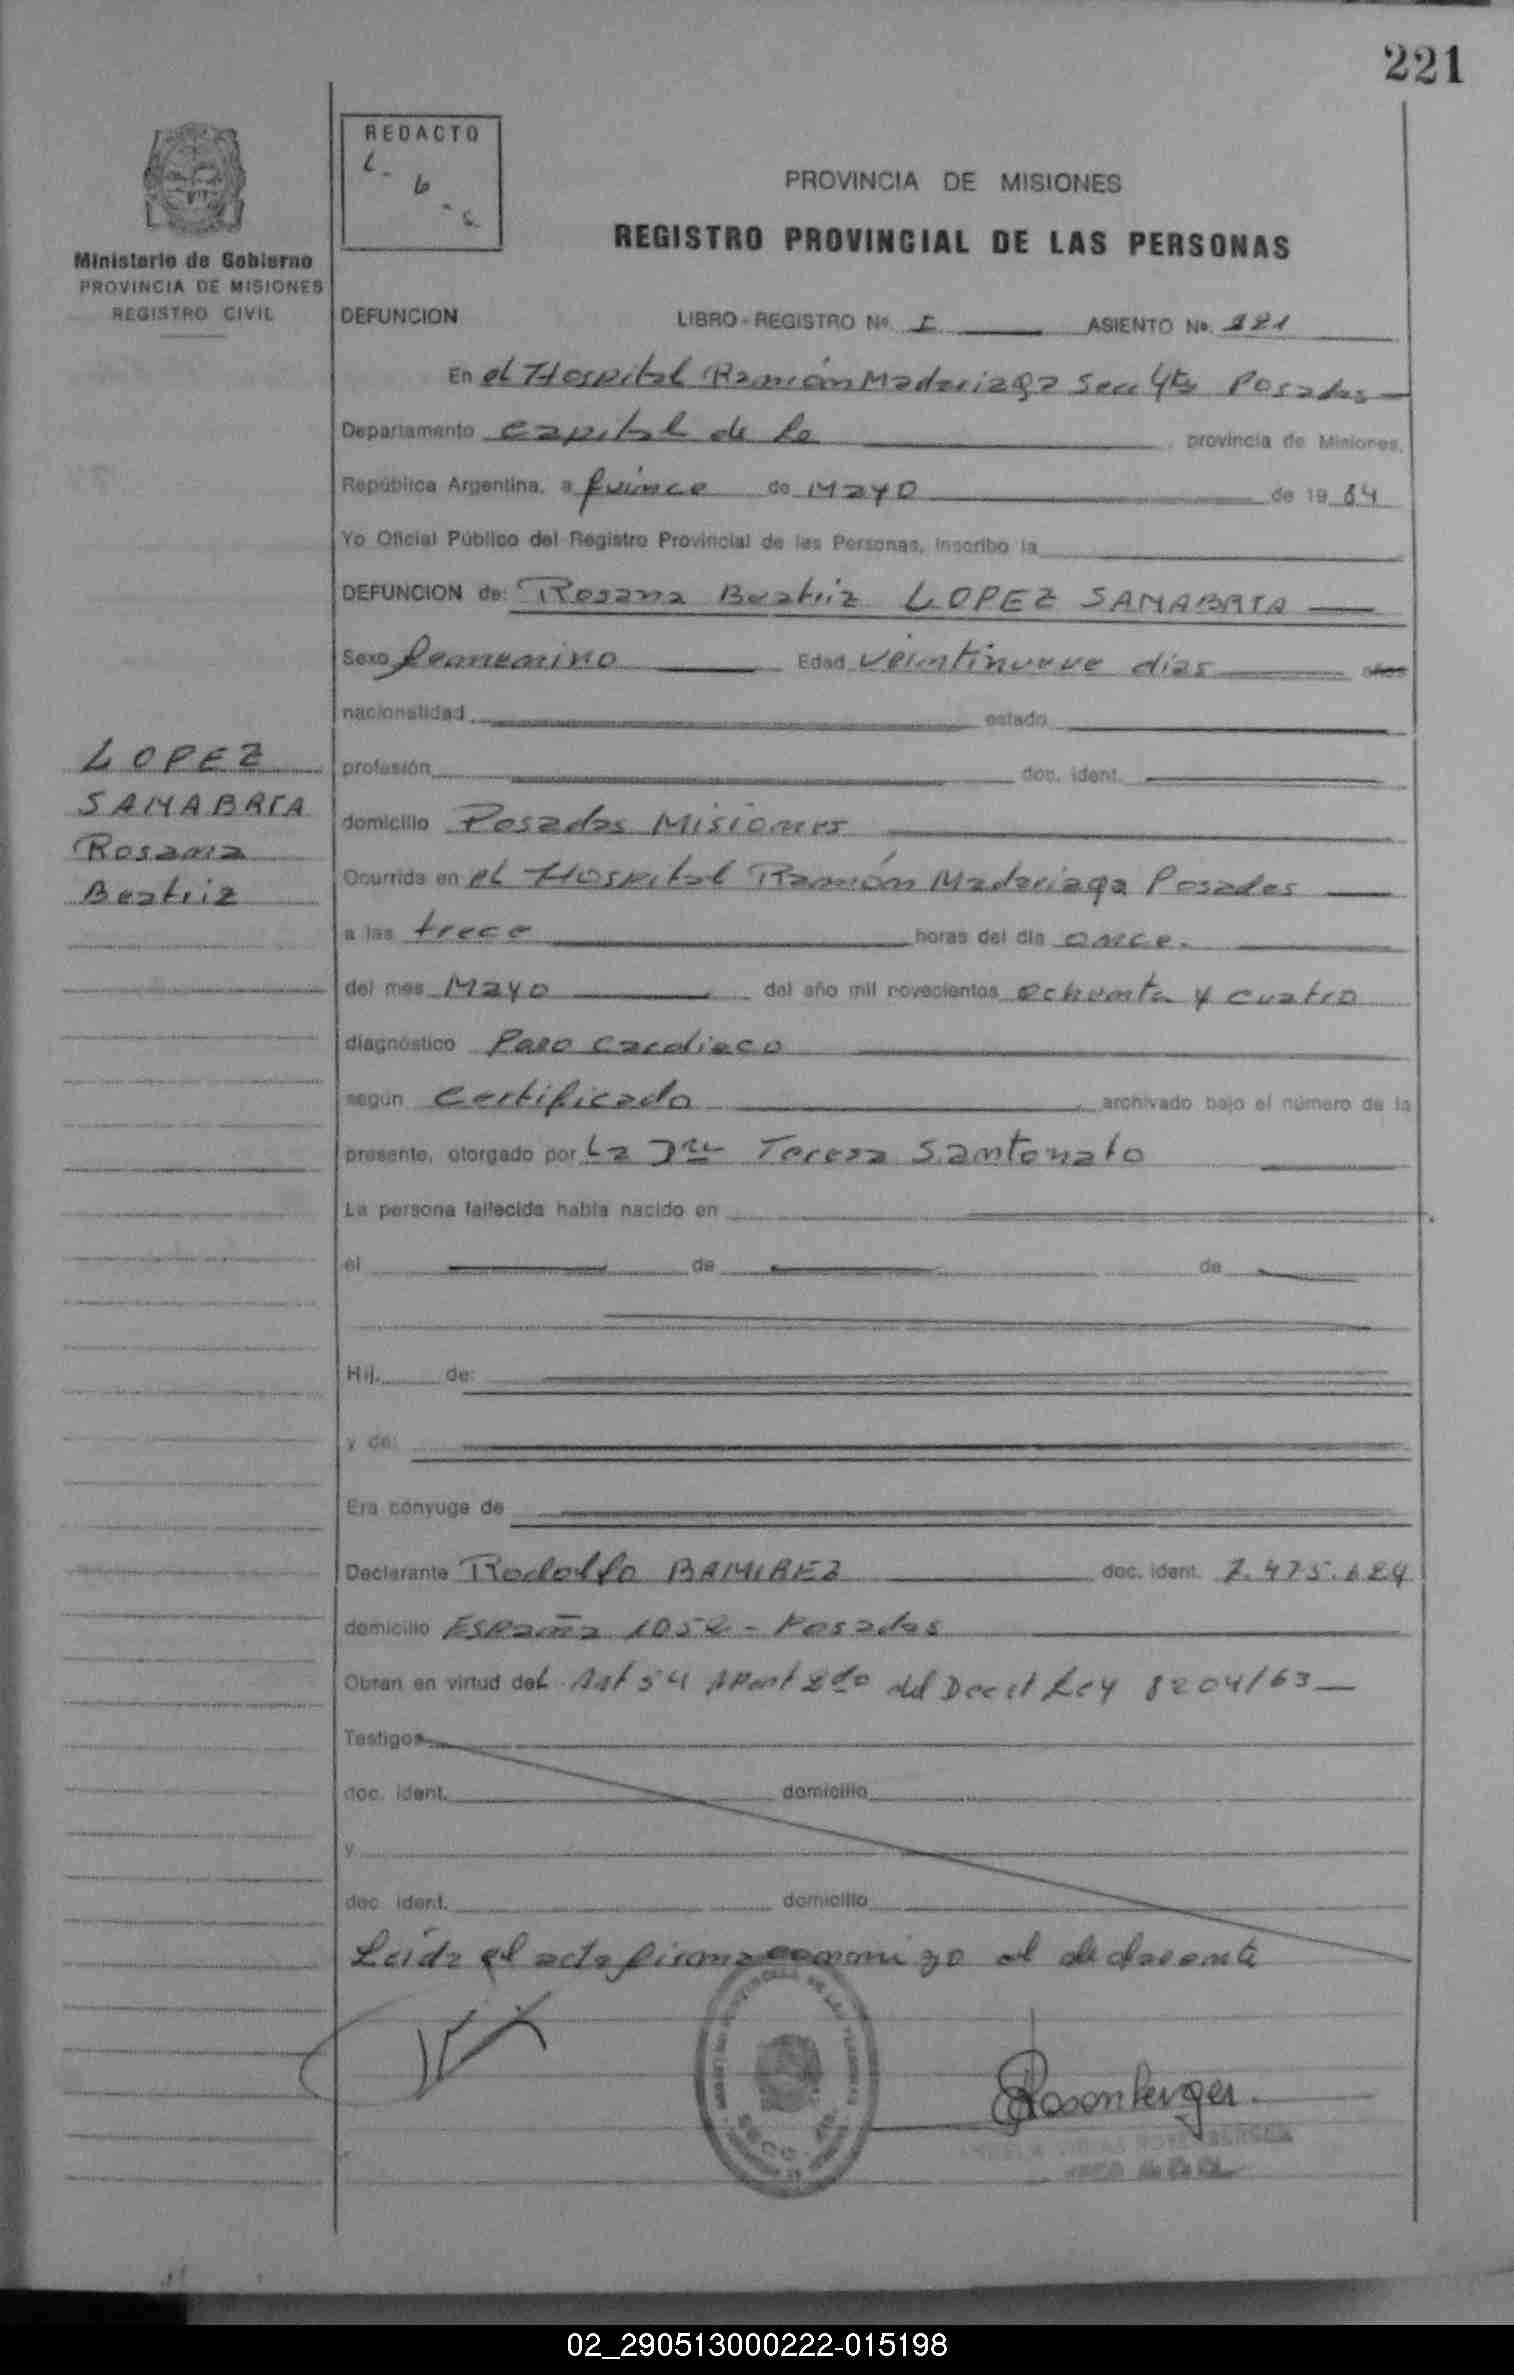 221
REDACTO
L. b. c
Ministerio de Gobierno
PROVINCIA DE MISIONES
REGISTRO CIVIL
PROVINCIA DE MISIONES
REGISTRO PROVINCIAL DE LAS PERSONAS
DEFUNCION LIBRO - REGISTRO No. I ASIENTO No. 221
En el Hospital Ramón Madariaga Secc 4ta Posadas
Departamento Capital de la provincia de Misiones,
República Argentina, a quince de MAYO de 19 84
Yo Oficial Público del Registro Provincial de las Personas, inscribo la
DEFUNCION de: Rosana Beatriz LOPEZ SANABRIA
Sexo femenino Edad veintinueve dias años
nacionalidad estado
profesión doc. ident.
domicilio Posadas Misiones
Ocurrida en el Hospital Ramón Madariaga Posadas
a las trece horas del día once.
del mes Mayo del año mil novecientos ochenta y cuatro
diagnóstico Paro Cardiaco
según Certificado archivado bajo el número de la
presente, otorgado por La Dra Teresa Santonato
La persona fallecida había nacido en
el de de
Hij. de:
y de:
Era cónyuge de
Declarante Rodolfo RAMIREZ doc. ident. 7.475.624
domicilio España 1052 - Posadas
Obran en virtud del Art 54 Apart 2do del Decret Ley 8204/63
Testigos
doc. ident. domicilio
y
doc. ident. domicilio
Leída el acta firma conmigo el declarante
LOPEZ
SANABRIA
Rosana
Beatriz
Rosenberger
02_290513000222-015198